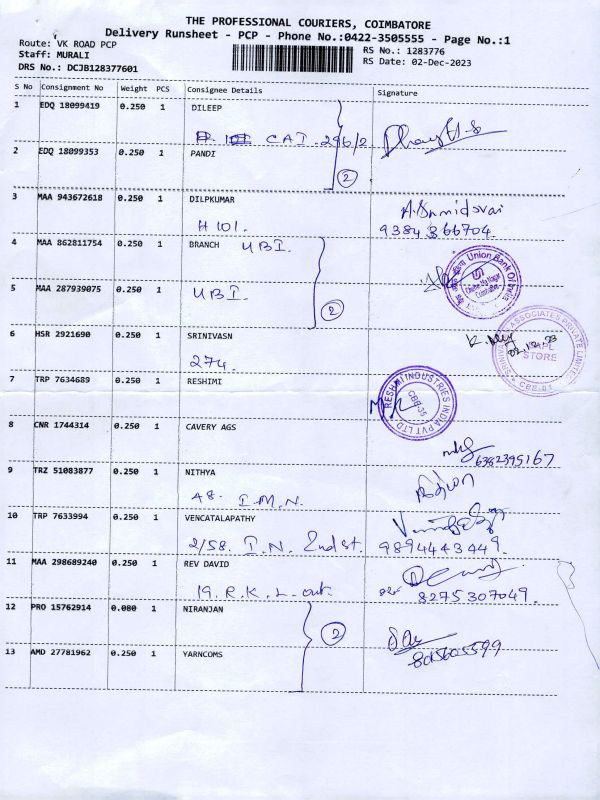 THE PROFESSIONAL COURIERS, COIMBATORE
Delivery Runsheet - PCP - Phone No.:0422-3505555 - Page No.:1
Route: VK ROAD PCP
RS No.: 1283776
Staff: MURALI
RS Date: 02-Dec-2023
DRS No.: DCJB128377601
S No Consignment No Weight PCS Consignee Details Signature
1 EDQ 18099419 0.250 1 DILEEP
CAI 296/2
2 EDQ 18099353 0.250 1 PANDI
2
3 MAA 943672618 0.250 1 DILPKUMAR
H 101. 9384366704.
4 MAA 862811754 0.250 1 BRANCH UBI.
Union Bank Of India
5 MAA 287939075 0.250 1
UBI. 2
6 HSR 2921690 0.250 1 SRINIVASN
274.
ASSOCIATES PRIVATE LIMITED
STORE
CBE-
7 TRP 7634689 0.250 1 RESHIMI
RESHMI INDUSTRIES INDIA PVT LTD
CBE-35
8 CNR 1744314 0.250 1 CAVERY AGS
6382395167
9 TRZ 51083877 0.250 1 NITHYA
48. I.M.N.
10 TRP 7633994 0.250 1 VENCATALAPATHY
2/58. I.N. 2nd st. 9894443449.
11 MAA 298689240 0.250 1 REV DAVID
19. R.K.L. out. 8275307049.
12 PRO 15762914 0.080 1 NIRANJAN
2
13 AMD 27781962 0.250 1 YARNCOMS